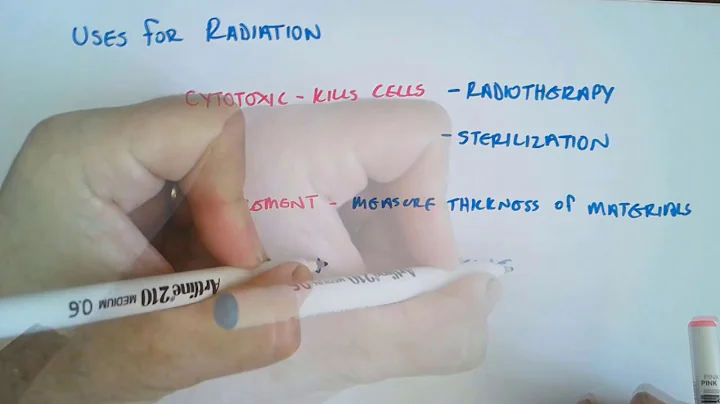 USES FOR RADIATION
CYTOTOXIC - KILLS CELLS - RADIOTHERAPY
- STERILIZATION
- MEASURE THICKNESS OF MATERIALS
Artline 210 MEDIUM 0.6
Artline 210
PINK
PINK